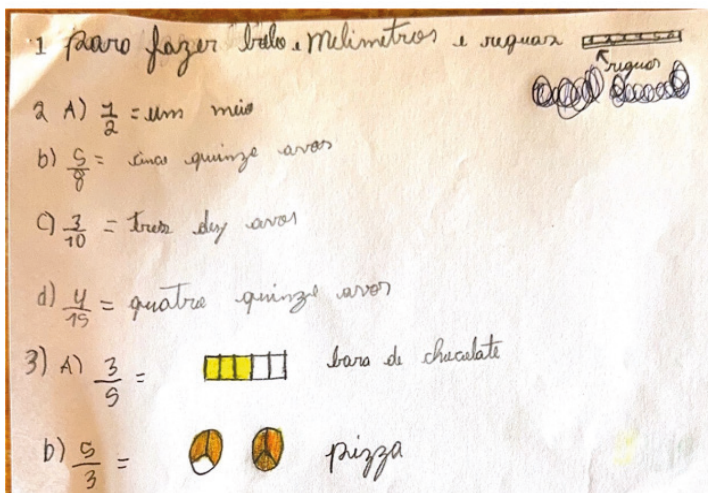 1 Para fazer bolo, Melimetros e reguas
reguas
2 A) 1/2 = um meio
b) 5/8 = cinco quinze avos
c) 3/10 = tres dez avos
d) 4/15 = quatro quinze avos
3) A) 3/5 = bara de chucolate
b) 5/3 = pizza